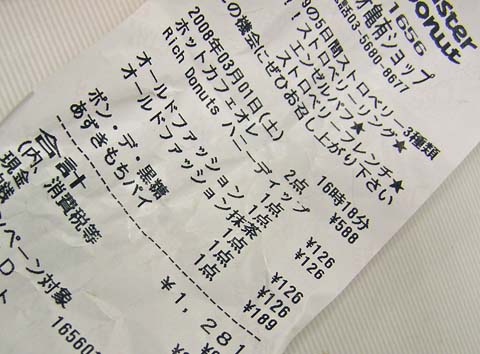 ster
Donut
1656
亀有ショップ
03-5680-8677
の5日間ストロベリー3種類
ストロベリーフレンチ★
！ストロベリーリング★
エンゼルパフ★
の機会にぜひお召し上がり下さい
2008年03月01日(土) 16時18分
ホットカフェオレ 2点 ¥588
Rich Donuts ハニーディップ 1点 ¥126
オールドファッション 1点 ¥126
オールドファッション抹茶 1点 ¥126
ポン・デ・黒糖 1点 ¥126
あずきもちパイ 1点 ¥189
合計 ¥1,281
(内、消費税等
現金
ペーン対象
16560